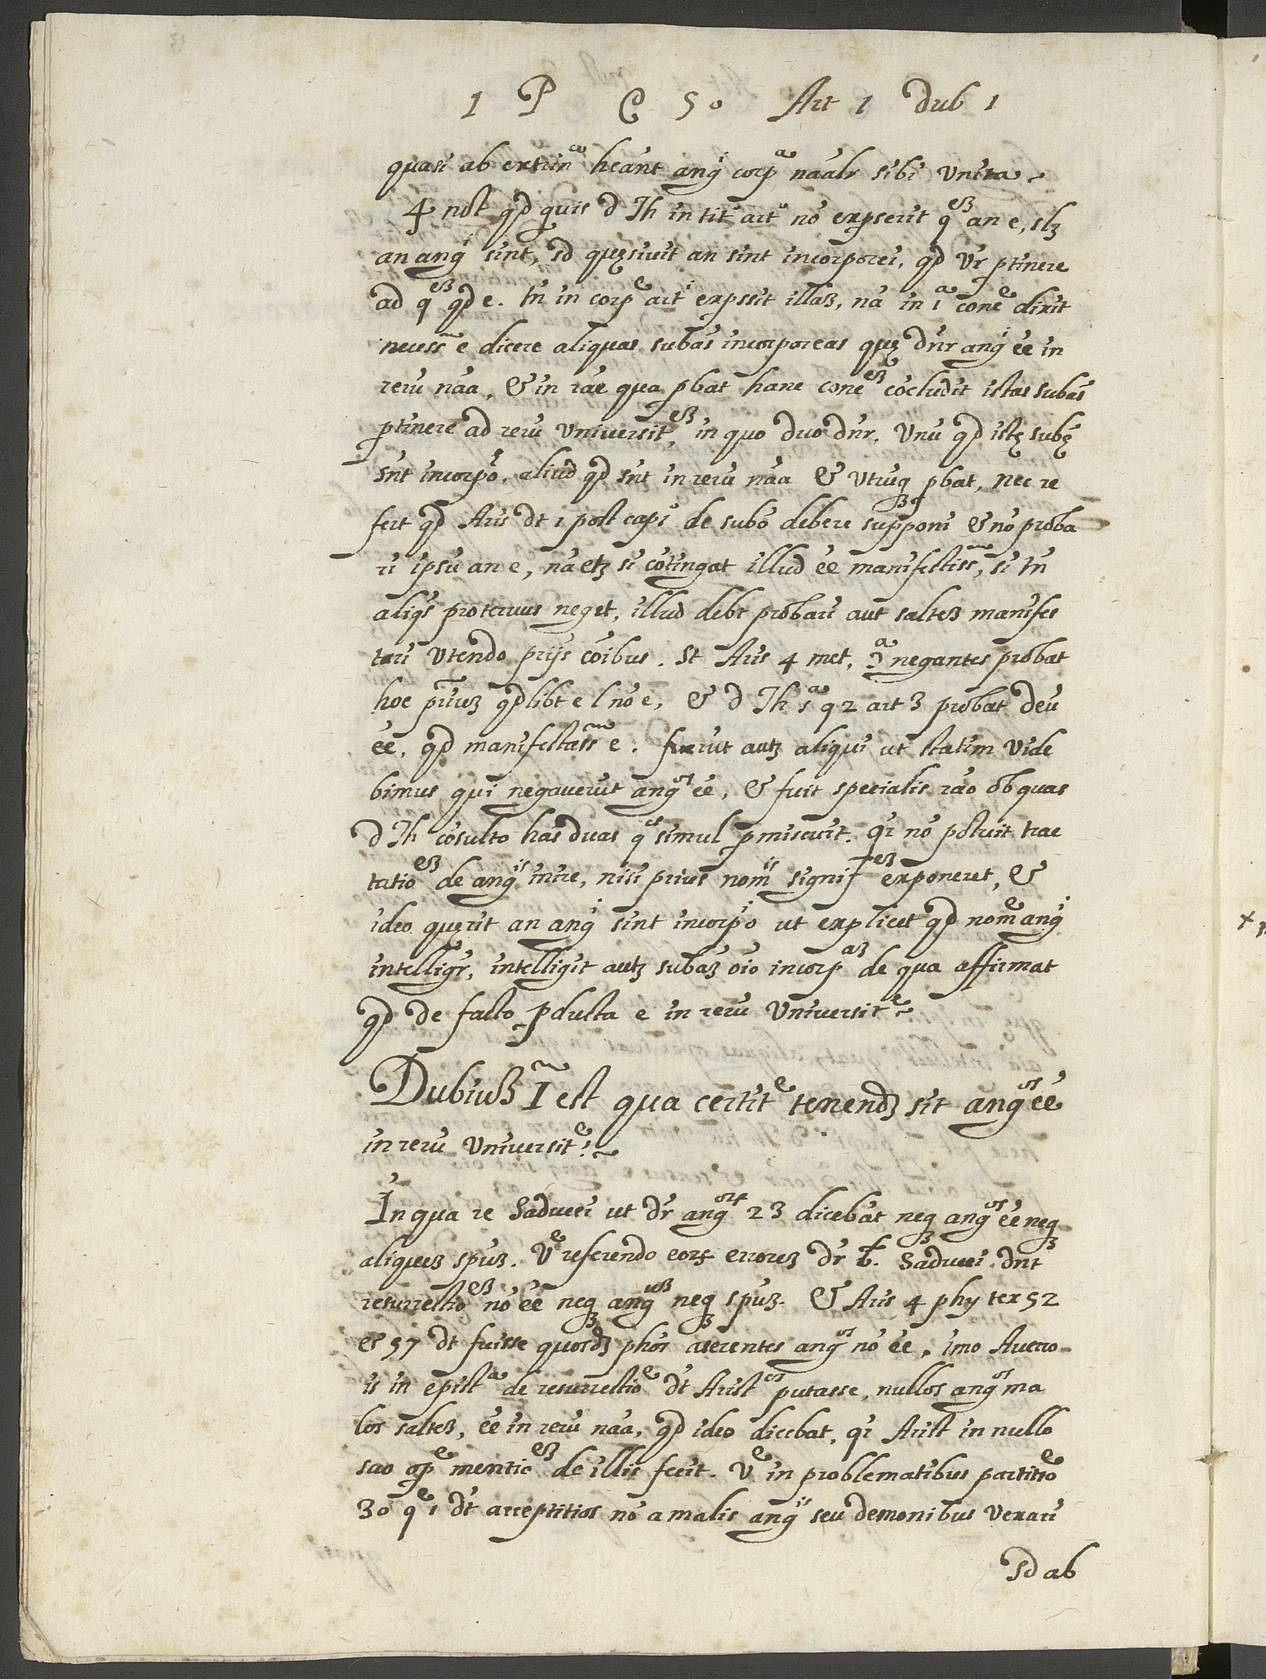 1 P Q 50 Art 1 Dub 1
quasi ab extrinª heánt angⁱ corpª náalr sibi Vnita
4 not qd quis D Th in tit artⁱ nó expserit qᵉᶻ an e, slz
an angⁱ sint, sd quęsiuit an sint incorporei, qd Vr ptinere
ad qᵉᶻ qd e. tń in corpᵉ artⁱ expssit illaz, ná in 1ª conéᵉ dixit
necess̃ e dicere aliquas subás incorporeas quę dńr angⁱ eé in
rerú náa, & in ráe qua pbat hanc conéᵉᶻ cócludit istas subás
ptinere ad rerú Vniuersitᵉᶻ, in quo duo dńr. Vnú qd istę subę
sńt incorpó, aliud qd sńt in rerú náa & Vtrúq pbat, nec re
fert qd Aris dt 1 post capⁱ de subó debere supponi & nó proba
ri ipsú an e, ná etz si cótingat illud eé manifestiss̃, si tń
aliqs proteruus neget, illud debt probari aut saltez manifes
tari Vtendo prijs cóibus. St Aris 4 met, ɔª negantes probat
hoc pr̃iuz qdlibt e l nó e, & D Th 1ª q 2 art 3 probat Deú
eé, qd manifestass̃ e. fuerút autz aliqui ut statim Vide
bimus qui negauerút angᵒˢ eé, & fuit specialis ráo ob quas
D Th cósulto has duas qᵉˢ simul pmiscuit. qi nó potuit trac
tatioᵉᶻ de angⁱˢ inire, nisi prius nomⁱˢ signifᵉᶻ exponeret, &
ideo quęrit an angⁱ sint incorpóⁱ ut explicet qd nomᵉ angⁱ
intelligr, intelligit autz subáz oío incorpªᶻ de qua affirmat
qd de facto pducta e in rerú Vniuersitᵉ
Dubiuz I est qua certitᵉ tenendz sit angᵒˢ eé
in rerú Vniuersitᵉ.
In qua re Saducei ut dr angᵒʳ 23 dicebát neq angᵒˢ eé neq
aliquez spúz. Vᵉ referendo eorꝝ errorez dr t. Saducei dńt
resurrectioᵉᶻ nó eé neq angᵘᶻ neq spúz. & Aris 4 phy tex 52
et 57 dt fuisse quosdz phós aserentes angᵒˢ nó eé, imo Auerro
is in epistª de resurrectioᵉ dt Aristᵉˢ putasse, nullos angᵒˢ ma
los saltez, eé in rerú náa, qd ideo dicebat, qi Arist in nullo
suo opᵉ mentioᵉᶻ de illis fecit. Vᵉ in problematibus partitioᵉ
30 qᵉ 1 dt arreptitios nó a malis angⁱˢ seu demonibus Vexari
Sd ab